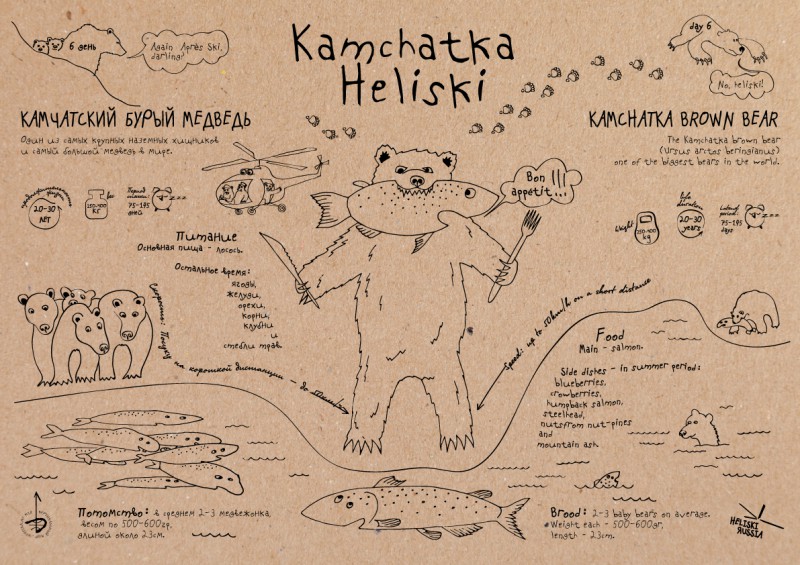 Kamchatka
Heliski
6 день
Again Après Ski,
darling!
day 6
No, heliski!
КАМЧАТСКИЙ БУРЫЙ МЕДВЕДЬ
Один из самых крупных наземных хищников
и самый большой медведь в мире.
KAMCHATKA BROWN BEAR
The Kamchatka brown bear
(Ursus arctos beringianus)
one of the biggest bears in the world.
20-30
лет
кг
75-195
дней
Weight
kg
Life
duration:
20-30
years
period:
75-195
days
Bon
appétit...!!!
Питание
Основная пища - лосось.
Остальное время:
ягоды,
желуди,
орехи,
корни,
клубни
и
стебли трав.
на короткой дистанции - до
Speed: up to 50km/h on a short distance
Food
Main - salmon.
Side dishes - in summer period:
blueberries,
crowberries,
humpback salmon,
steelhead,
nuts from nut-pines
and
mountain ash.
Потомство: в среднем 2-3 медвежонка,
весом по 500-600гр,
длиной около 23см.
Brood: 2-3 baby bears on average.
Weight each - 500-600gr,
length - 23cm.
HELISKI
RUSSIA